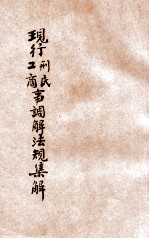 現行民刑工商事調解法規集解